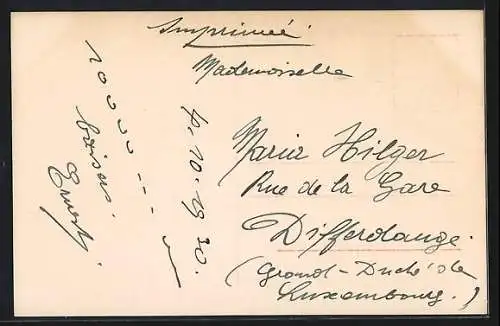 Imprimée
Mademoiselle
Maria Hilger
Rue de la Gare
Differdange.
(Grand-Duché de
Luxembourg.)
4.10.1920.
100000---
baisers.
Ernest.